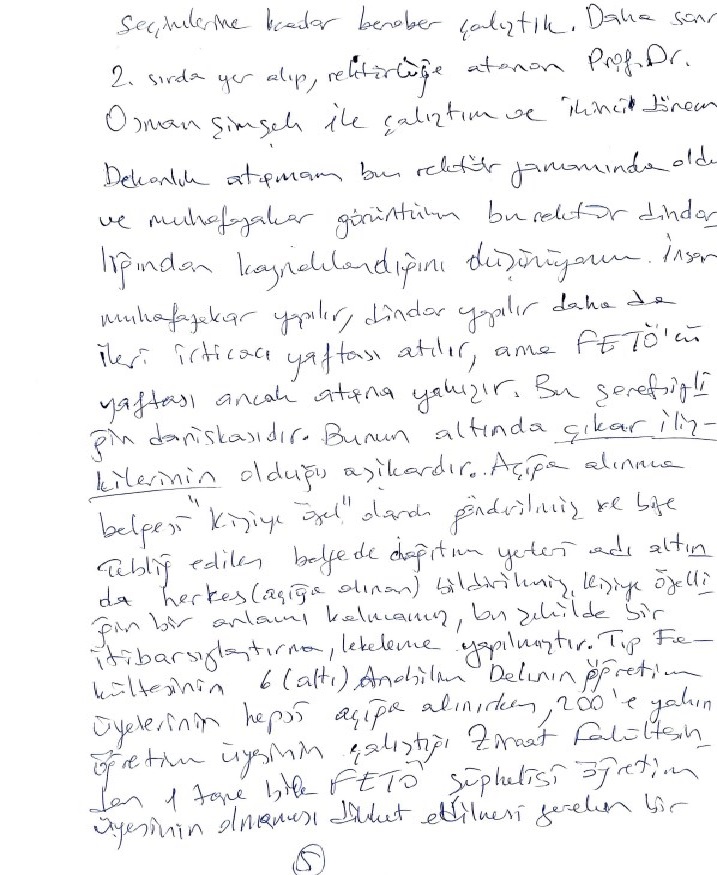 seçimlerine kadar beraber çalıştık. Daha sonr
2. sırda yer alıp, rektörlüğe atanan Prof. Dr.
Osman Şimşek ile çalıştım ve ikinci dönem
Dekanlık atamam bu rektör zamanında oldu
ve muhafazakar görüntüm bu rektör dindar
lığından kaynaklandığını düşünüyorum. İnsan
muhafazakar yapılır, dindar yapılır daha da
ileri irticacı yaftası atılır, ama FETÖ'cü
yaftası ancak atana yakışır. Bu şerefsizli
ğin daniskasıdır. Bunun altında çıkar iliş-
kilerinin olduğu aşikardır. Açığa alınma
belgesi "kişiye özel" olarak gönderilmiş ve bize
tebliğ edilen belgede dağıtım yeteri adı altın
da herkes (açığa alınan) bildirilmiş, kişiye özelli
ğin bir anlamı kalmamış, bu şekilde bir
itibarsızlaştırma, lekeleme yapılmıştır. Tıp Fa-
kültesinin 6 (altı) Anabilim Dalının öğretim
üyelerinin hepsi açığa alınırken, 200'e yakın
öğretim üyesinin çalıştığı Ziraat Fakültesin
den 1 tane bile FETÖ şüphelisi öğretim
üyesinin olmaması dikkat edilmesi gereken bir
5